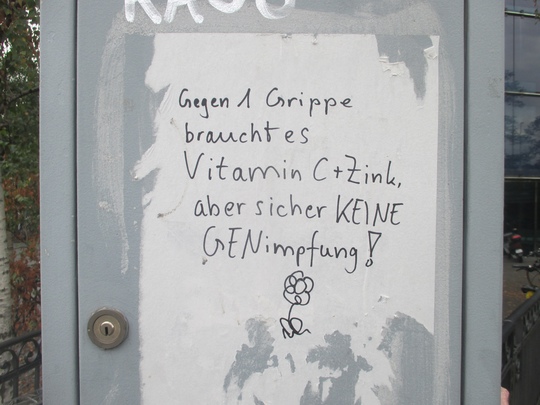 Gegen 1 Grippe
braucht es
Vitamin C+Zink,
aber sicher KEINE
GENimpfung!